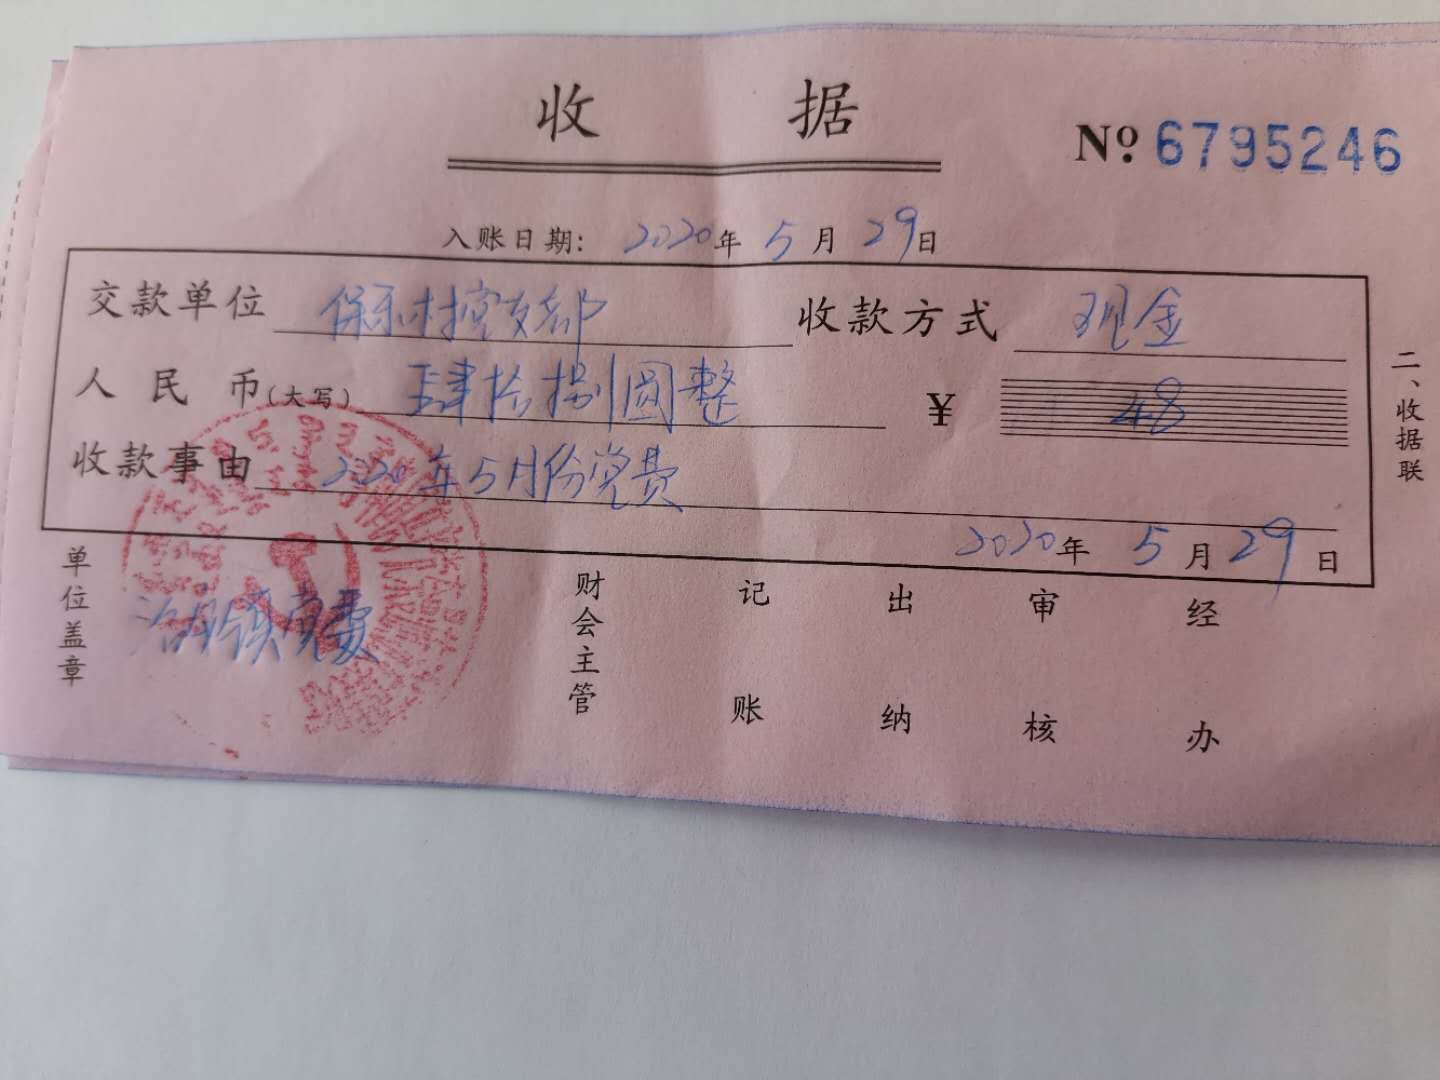 收据
№ 6795246
入账日期: 2020年5月29日
交款单位 保禾村党支部 收款方式 现金
人民币(大写) 肆拾捌圆整 ¥ 48
收款事由 2020年5月份党费
2020年5月29日
单位盖章 镇党委 财会主管 记账 出纳 审核 经办
二、收据联